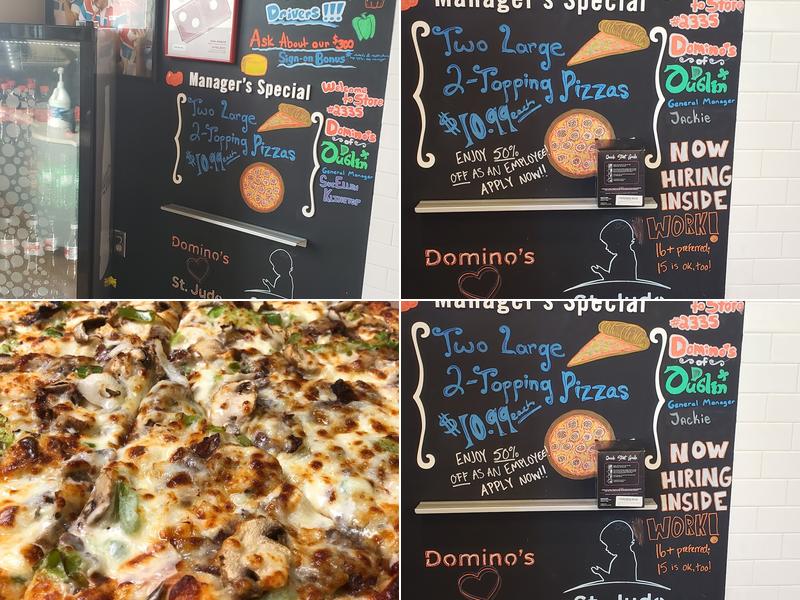 Drivers !!!
Ask About our $300
Sign-on Bonus
Manager's Special
Two Large
2-Topping Pizzas
$10.99 each
Welcome
to Store
#2335
Domino's
of
Dublin
General Manager
Domino's
St. Jude
Manager's Special
Two Large
2-Topping Pizzas
$10.99 each
ENJOY 50%
OFF AS AN EMPLOYEE
APPLY NOW!!
to Store
#2335
Domino's
of
Dublin
General Manager
Jackie
NOW
HIRING
INSIDE
WORK!
16+ preferred;
15 is ok, too!
Domino's
St. Jude
Manager's Special
Two Large
2-Topping Pizzas
$10.99 each
ENJOY 50%
OFF AS AN EMPLOYEE
APPLY NOW!!
to Store
#2335
Domino's
of
Dublin
General Manager
Jackie
NOW
HIRING
INSIDE
WORK!
16+ preferred;
15 is ok, too!
Domino's
St. Jude